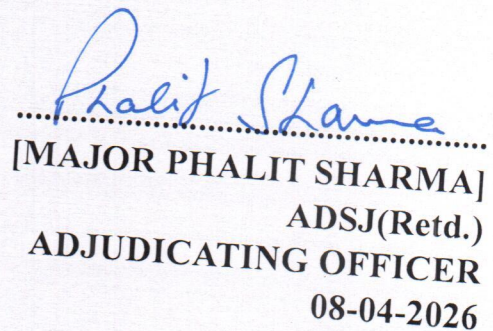 Phalit Sharma
[MAJOR PHALIT SHARMA]
ADSJ(Retd.)
ADJUDICATING OFFICER
08-04-2026